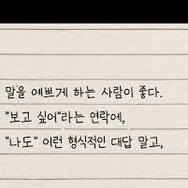 말을 예쁘게 하는 사람이 좋다.
"보고 싶어"라는 연락에,
"나도" 이런 형식적인 대답 말고,